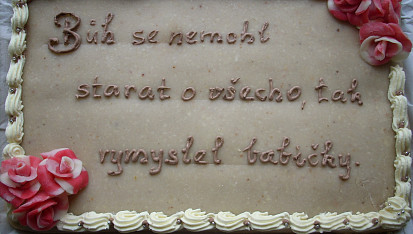 Bůh se nemohl
starat o všecho, tak
vymyslel babičky.